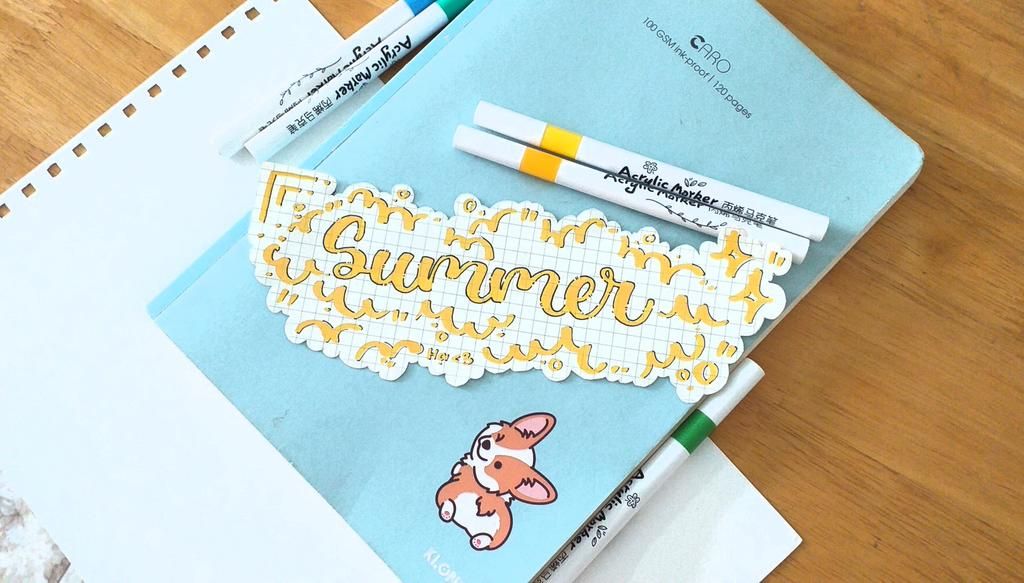 CARO
100 GSM ink-proof | 120 pages
Acrylic Marker
丙烯马克笔
Acrylic Marker
丙烯马克笔
Acrylic Marker
Acrylic Marker
丙烯马克笔
Summer
Ha <3
Acrylic Marker
丙烯马克笔